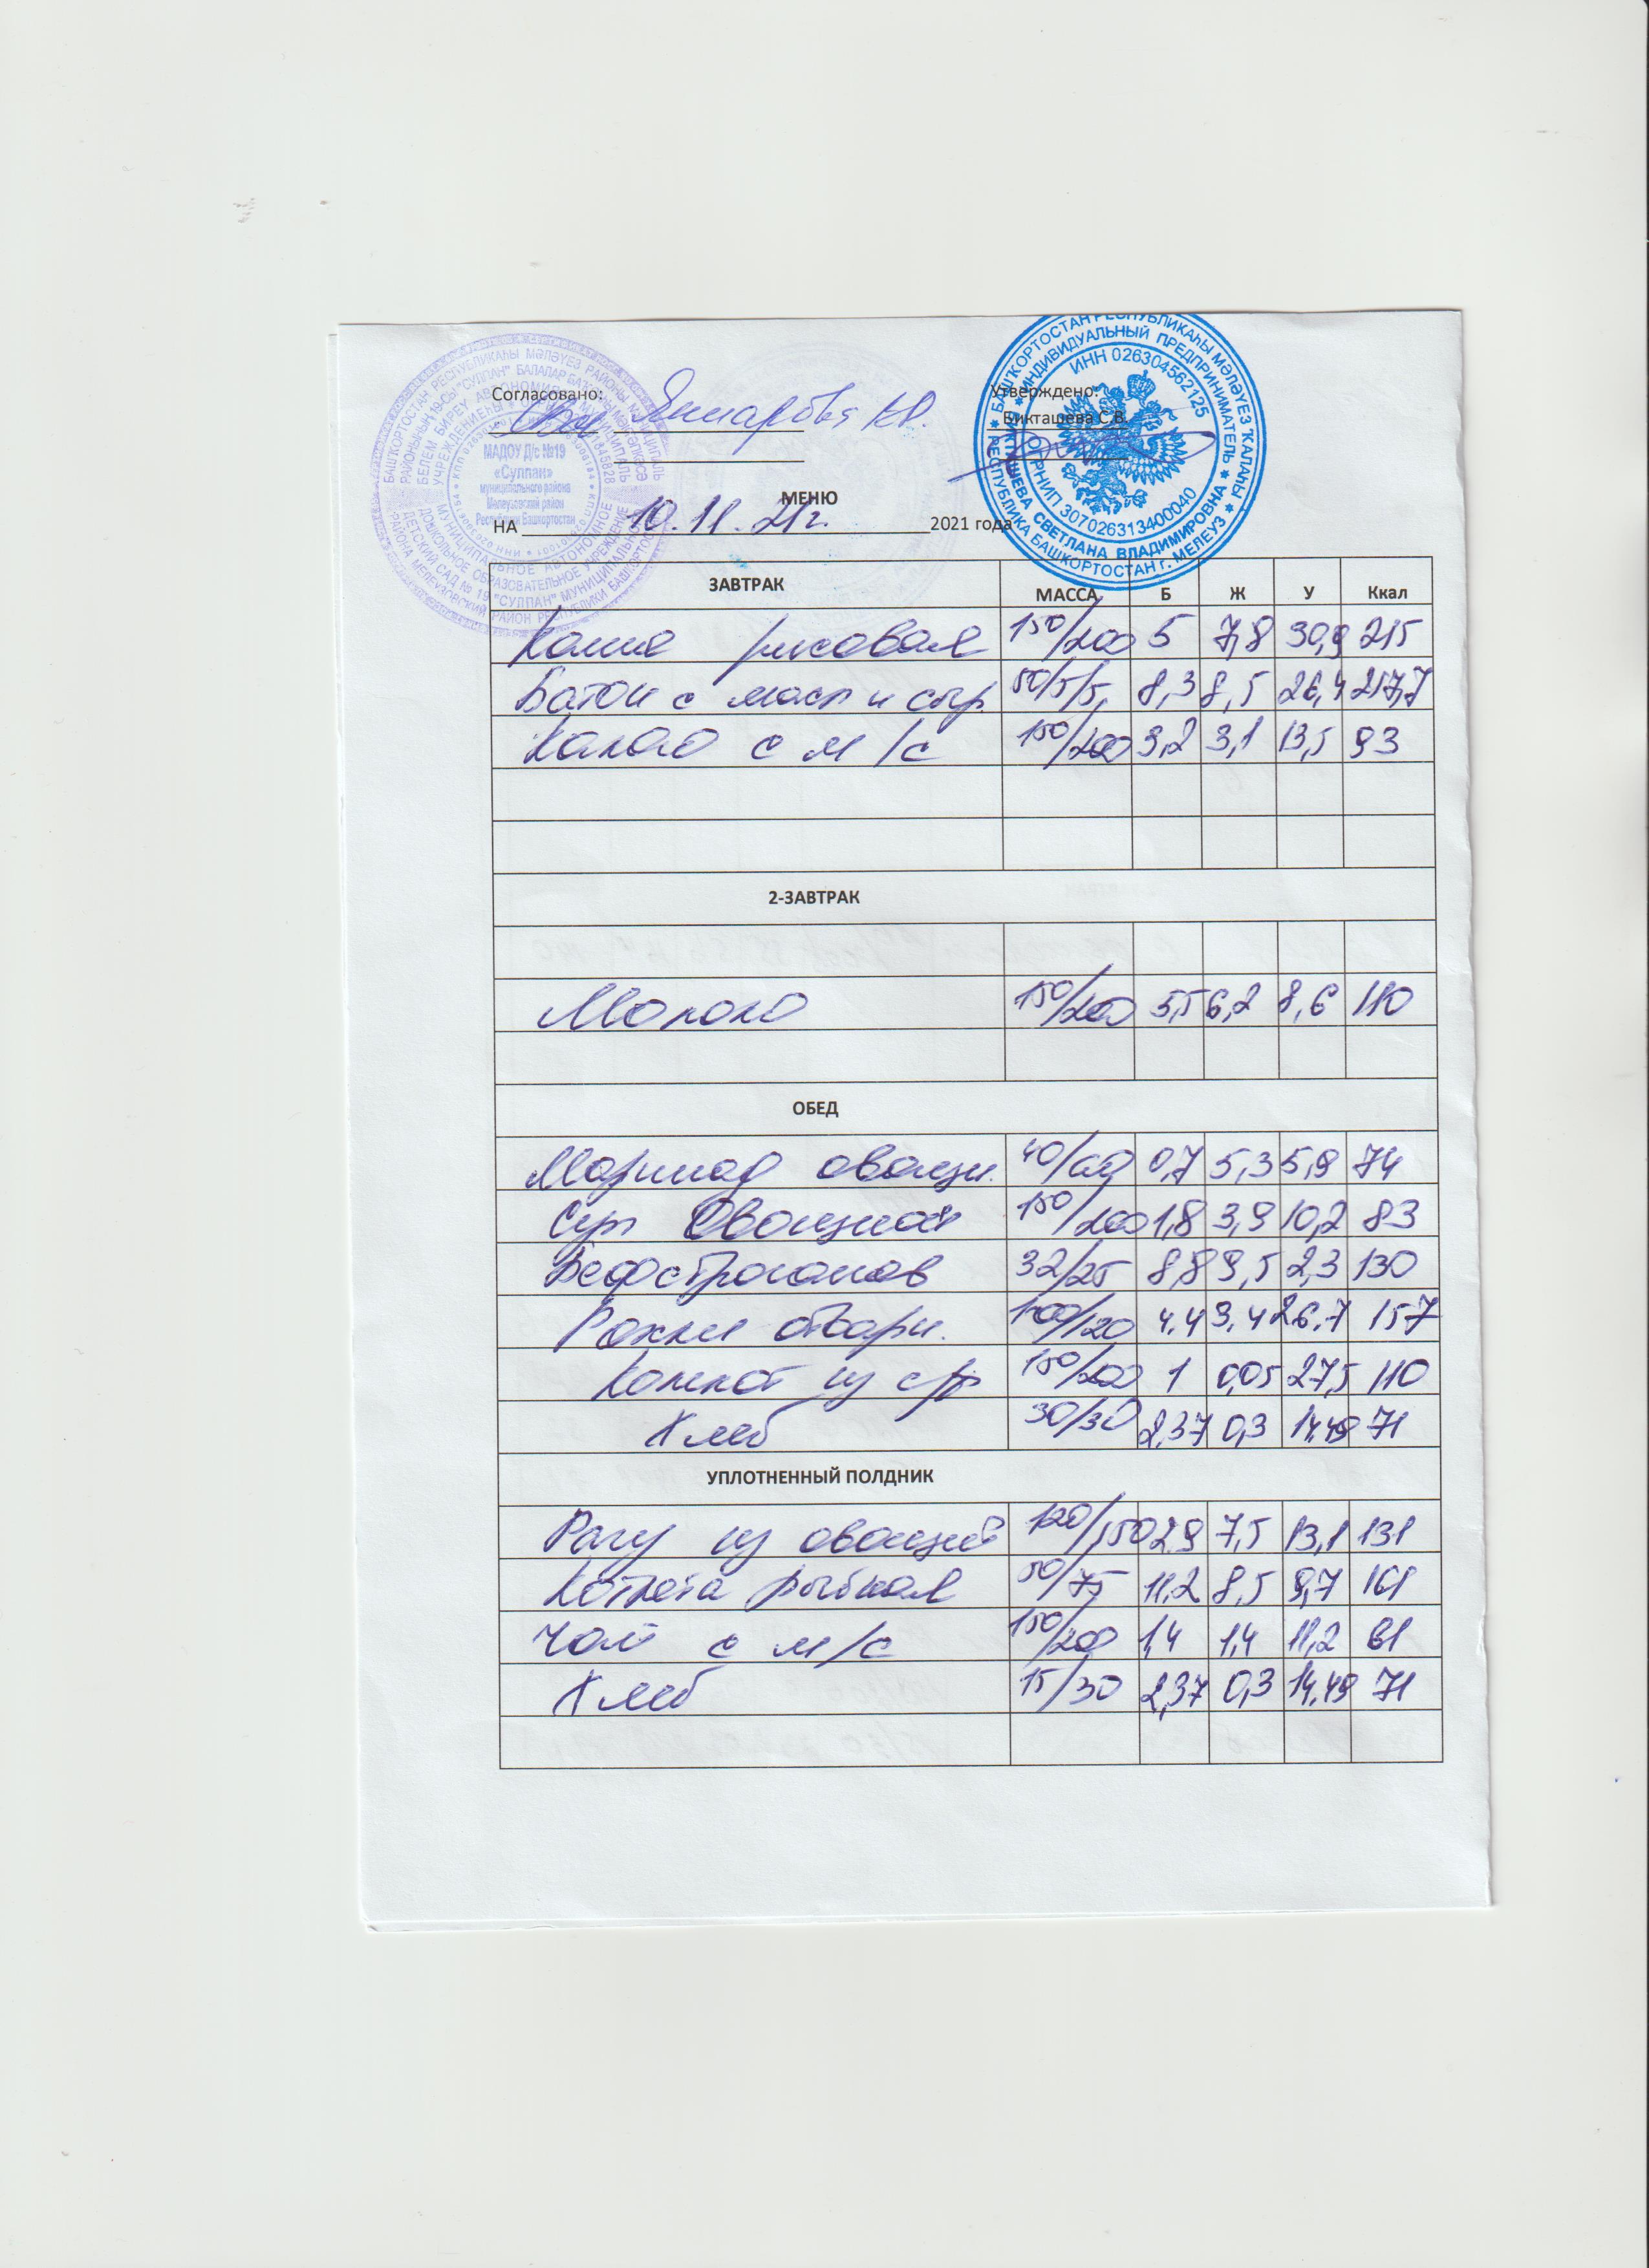 Согласовано:
Утверждено:
Бикташева С.В.
МЕНЮ
НА 10.11.21г. 2021 года
МАДОУ Д/с №19
«Сулпан»
муниципального района
Мелеузовский район
Республики Башкортостан
БАШҠОРТОСТАН РЕСПУБЛИКАҺЫ МӘЛӘҮЕЗ ҠАЛАҺЫ
РЕСПУБЛИКА БАШКОРТОСТАН г. МЕЛЕУЗ
ИНДИВИДУАЛЬНЫЙ ПРЕДПРИНИМАТЕЛЬ
СВЕТЛАНА ВЛАДИМИРОВНА
ИНН 026304562125
ОГРНИП 307026313400040
ЗАВТРАК МАССА Б Ж У Ккал
Каша рисовая 150/200 5 7,8 30,9 215
Батон с масл и сыр. 50/5/5, 8,3 8,5 26,4 217,7
Какао с м/с 150/200 3,2 3,1 13,5 93
2-ЗАВТРАК
Молоко 150/200 5,5 6,2 8,6 110
ОБЕД
Маринад овощн. 40/60 0,7 5,3 5,9 74
Суп Овощной 150/200 1,8 3,9 10,2 83
Бефстроганов 32/25 8,8 9,5 2,3 130
Рожки отварн. 100/120 4.4 3,4 26.7 157
Компот из с/ф 150/200 1 0,05 27,5 110
Хлеб 30/30 2,37 0,3 14.49 71
УПЛОТНЕННЫЙ ПОЛДНИК
Рагу из овощей 120/150 2.9 7,5 13,1 131
Котлета рыбная 50/75 11,2 8,5 9,7 161
Чай с м/с 150/200 1,4 1,4 11,2 61
Хлеб 15/30 2,37 0,3 14.49 71